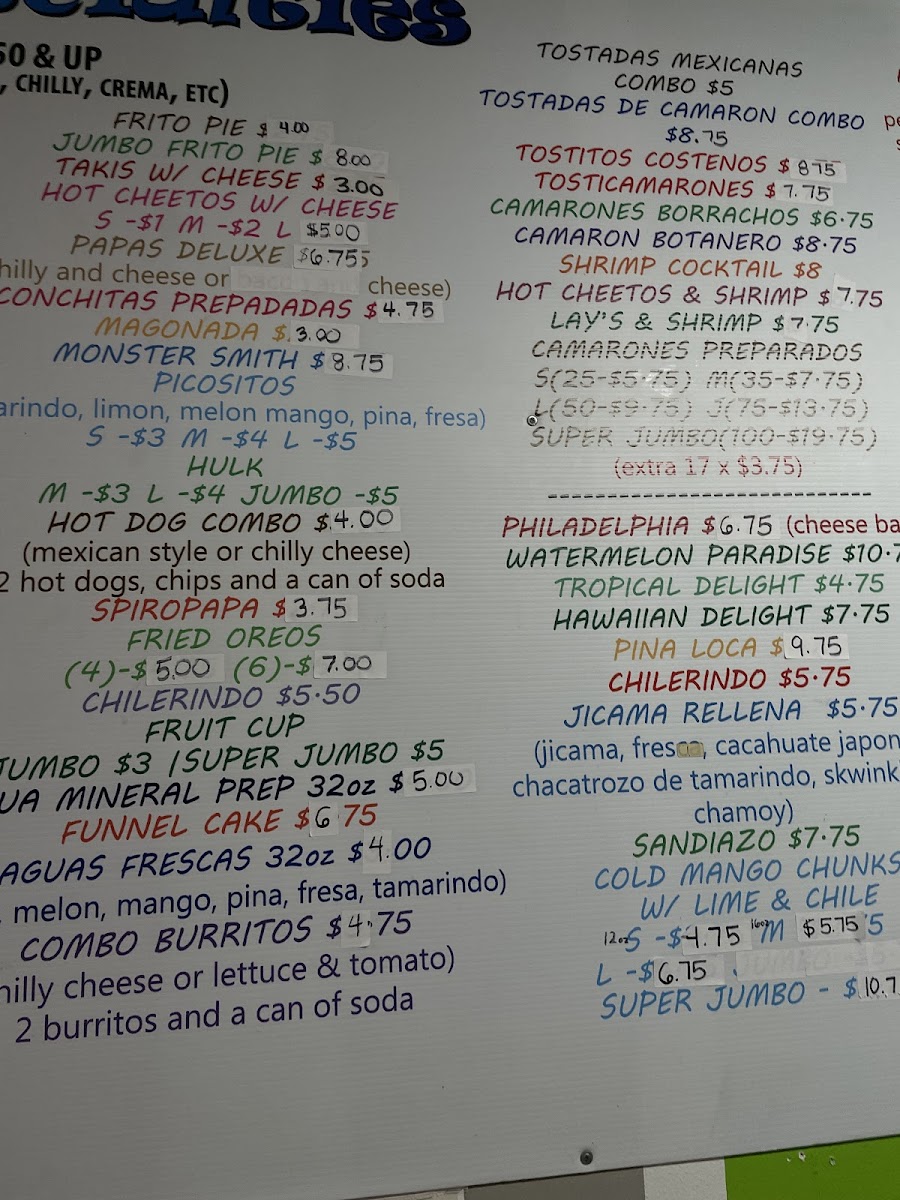 50 & UP
, CHILLY, CREMA, ETC)
FRITO PIE $ 4.00
JUMBO FRITO PIE $ 8.00
TAKIS W/ CHEESE $ 3.00
HOT CHEETOS W/ CHEESE
S -$1 M -$2 L $5.00
PAPAS DELUXE $6.755
hilly and cheese or cheese)
CONCHITAS PREPADADAS $4.75
MAGONADA $ 3.00
MONSTER SMITH $8.75
PICOSITOS
arindo, limon, melon mango, pina, fresa)
S -$3 M -$4 L -$5
HULK
M -$3 L -$4 JUMBO -$5
HOT DOG COMBO $4.00
(mexican style or chilly cheese)
2 hot dogs, chips and a can of soda
SPIROPAPA $ 3.75
FRIED OREOS
(4)-$ 5.00 (6)-$ 7.00
CHILERINDO $5.50
FRUIT CUP
JUMBO $3 / SUPER JUMBO $5
UA MINERAL PREP 32oz $ 5.00
FUNNEL CAKE $6 75
AGUAS FRESCAS 32oz $4.00
, melon, mango, pina, fresa, tamarindo)
COMBO BURRITOS $4.75
hilly cheese or lettuce & tomato)
2 burritos and a can of soda
TOSTADAS MEXICANAS
COMBO $5
TOSTADAS DE CAMARON COMBO
$8.75
TOSTITOS COSTENOS $ 875
TOSTICAMARONES $ 7.75
CAMARONES BORRACHOS $6.75
CAMARON BOTANERO $8.75
SHRIMP COCKTAIL $8
HOT CHEETOS & SHRIMP $ 7.75
LAY'S & SHRIMP $7.75
CAMARONES PREPARADOS
S(25-$5.75) M(35-$7.75)
L(50-$9.75) J(75-$13.75)
SUPER JUMBO(100-$19.75)
(extra 17 x $3.75)
----------------------------
PHILADELPHIA $6.75 (cheese ba
WATERMELON PARADISE $10.7
TROPICAL DELIGHT $4.75
HAWAIIAN DELIGHT $7.75
PINA LOCA $ 9.75
CHILERINDO $5.75
JICAMA RELLENA $5.75
(jicama, fresca, cacahuate japon
chacatrozo de tamarindo, skwink
chamoy)
SANDIAZO $7.75
COLD MANGO CHUNKS
W/ LIME & CHILE
12oz S -$4.75 16oz M $5.75 5
L -$6.75
SUPER JUMBO - $10.7